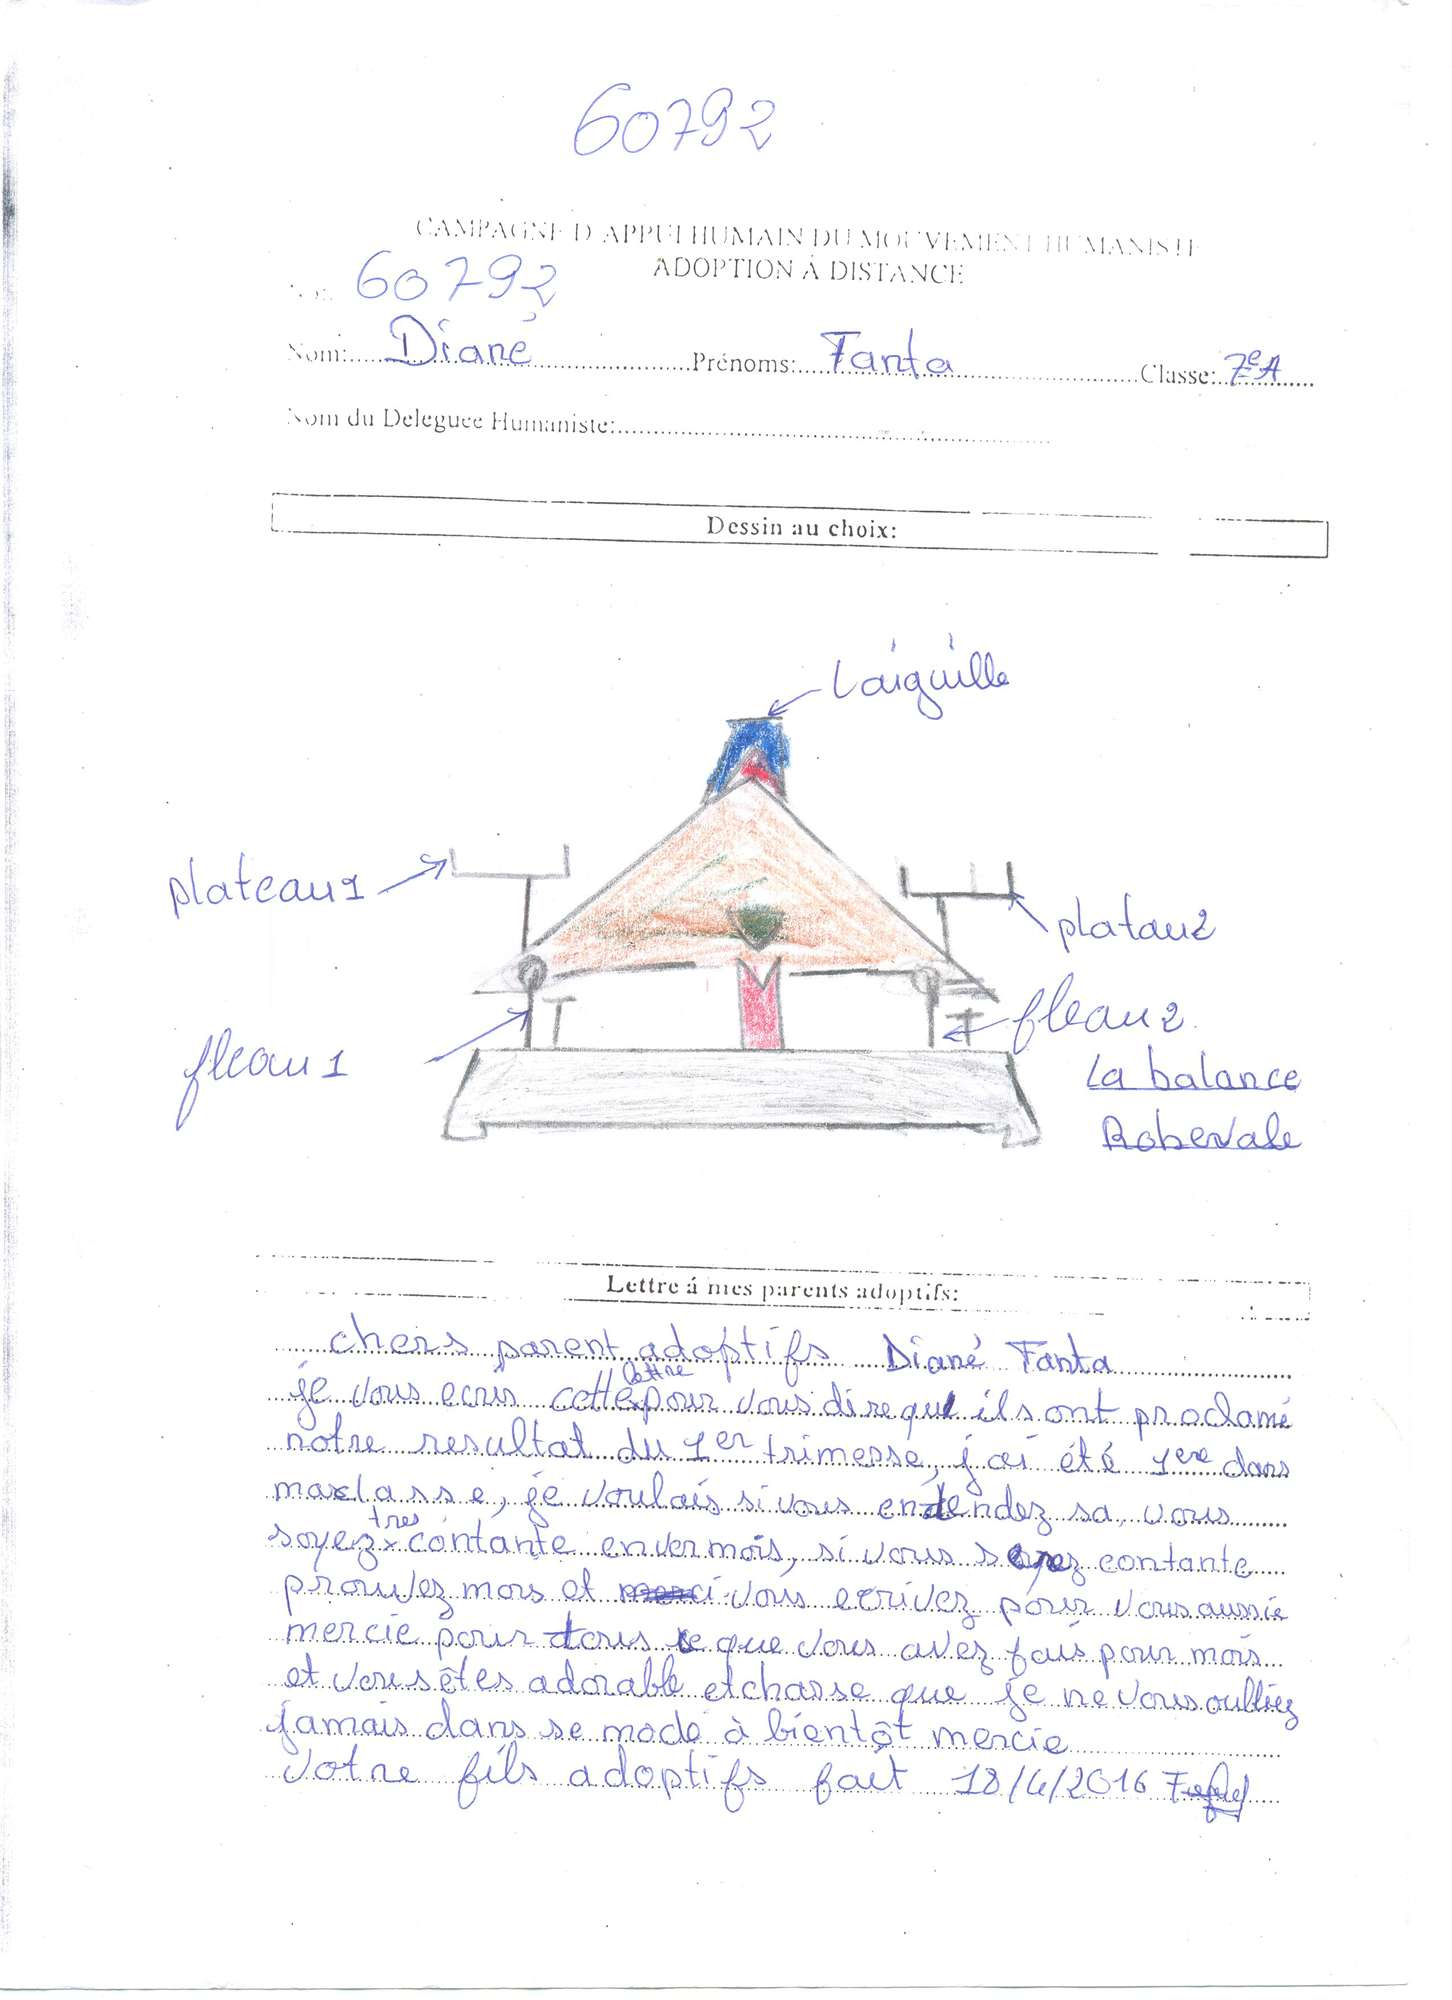 60792
CAMPAGNE D'APPUI HUMAIN DU MOUVEMENT HUMANISTE
ADOPTION Á DISTANCE
No: 60792
Nom:.....Diané.....Prénoms:..Fanta.....Classe:.7e A.....
Nom du Deleguee Humaniste:.....
Dessin au choix:
L'aiguille
plateau 1
platau 2
fleau 1
fleau 2
La balance
Robervale
Lettre á mes parents adoptifs:
chers parent adoptifs Diané Fanta
je vous ecris cette lettre pour vous dire que ils ont proclamé
notre resultat du 1er trimesse, j'ai été 1ere dans
ma classe, je voulais si vous entendez sa, vous
soyez tres contante enver mois, si vous soyez contante
prouvez mois et vous ecrivez pour vous aussie
mercie pour tous ce que vous avez fais pour mois
et vous êtes adorable et chasse que je ne vous oulliez
jamais dans se mode à bientôt mercie
votre fils adoptifs fait 18/4/2016